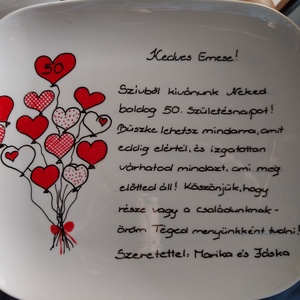 50
Kedves Emese!
Szívből kívánunk Neked
boldog 50. Születésnapot!
Büszke lehetsz mindarra, amit
eddig elértél, és izgatottan
várhatod mindazt, ami még
előtted áll! Köszönjük, hogy
része vagy a családunknak-
öröm Téged menyünkként tudni!
Szeretettel: Marika és Jóska